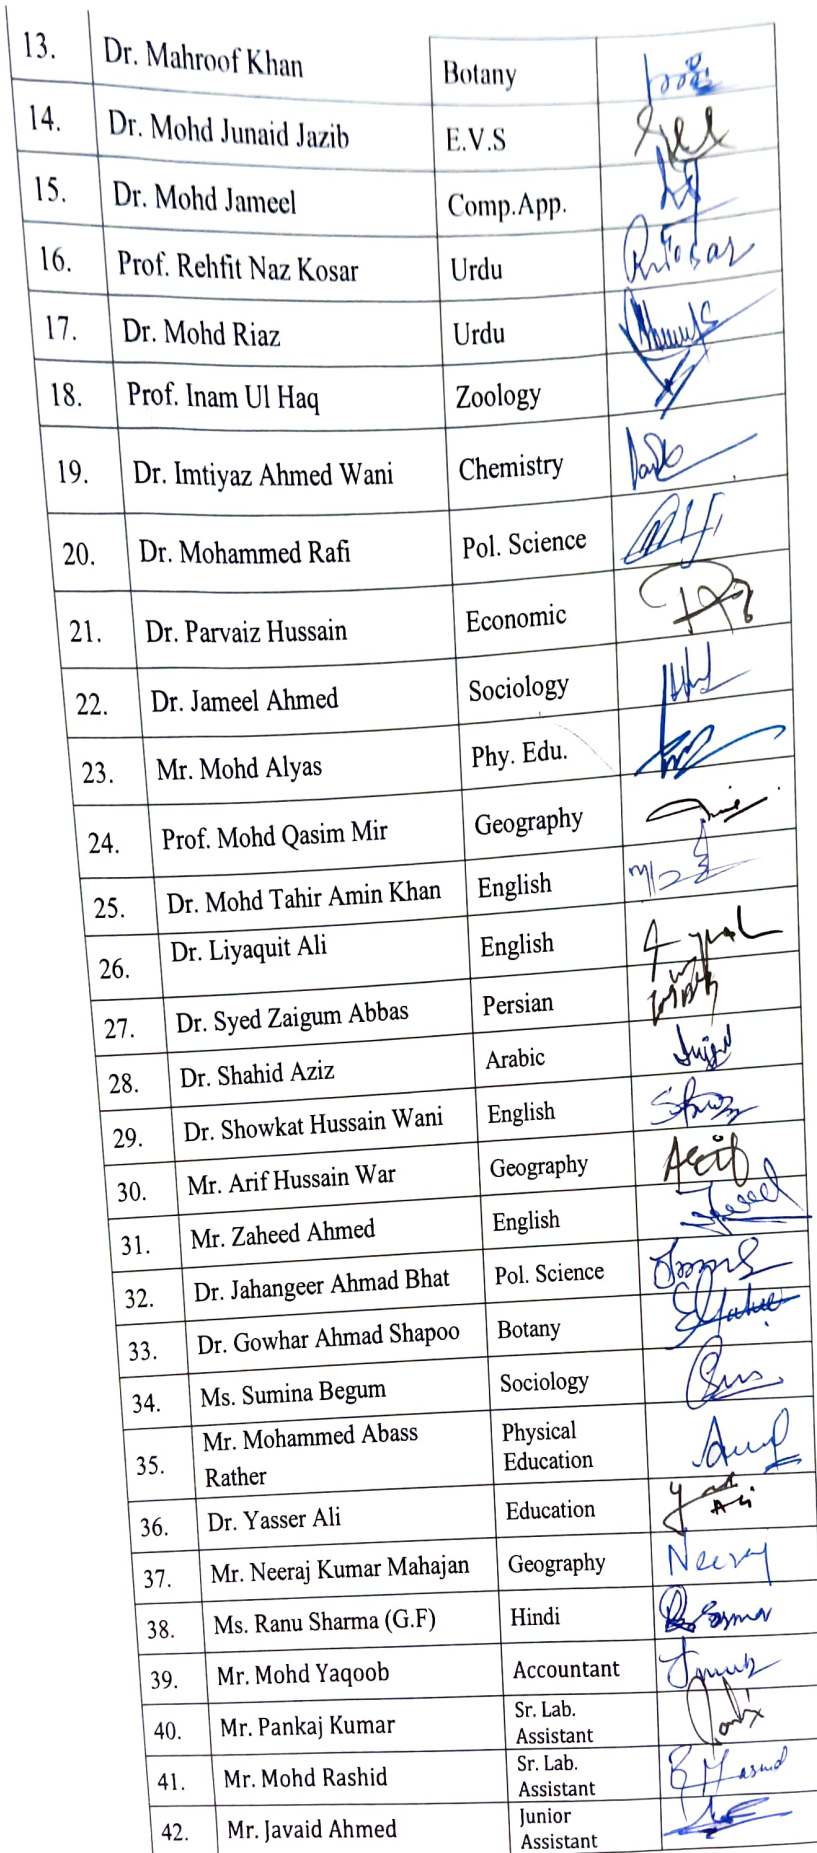 13. Dr. Mahroof Khan Botany
14. Dr. Mohd Junaid Jazib E.V.S
15. Dr. Mohd Jameel Comp.App.
16. Prof. Rehfit Naz Kosar Urdu
17. Dr. Mohd Riaz Urdu
18. Prof. Inam Ul Haq Zoology
19. Dr. Imtiyaz Ahmed Wani Chemistry
20. Dr. Mohammed Rafi Pol. Science
21. Dr. Parvaiz Hussain Economic
22. Dr. Jameel Ahmed Sociology
23. Mr. Mohd Alyas Phy. Edu.
24. Prof. Mohd Qasim Mir Geography
25. Dr. Mohd Tahir Amin Khan English
26. Dr. Liyaquit Ali English
27. Dr. Syed Zaigum Abbas Persian
28. Dr. Shahid Aziz Arabic
29. Dr. Showkat Hussain Wani English
30. Mr. Arif Hussain War Geography
31. Mr. Zaheed Ahmed English
32. Dr. Jahangeer Ahmad Bhat Pol. Science
33. Dr. Gowhar Ahmad Shapoo Botany
34. Ms. Sumina Begum Sociology
35. Mr. Mohammed Abass
Rather
Physical
Education
36. Dr. Yasser Ali Education
37. Mr. Neeraj Kumar Mahajan Geography Neeraj
38. Ms. Ranu Sharma (G.F) Hindi
39. Mr. Mohd Yaqoob Accountant
40. Mr. Pankaj Kumar Sr. Lab.
Assistant
41. Mr. Mohd Rashid Sr. Lab.
Assistant
42. Mr. Javaid Ahmed Junior
Assistant